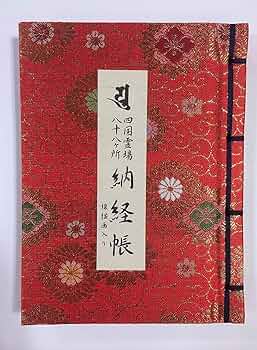 四国霊場
八十八ヶ所
納経帳
画入り